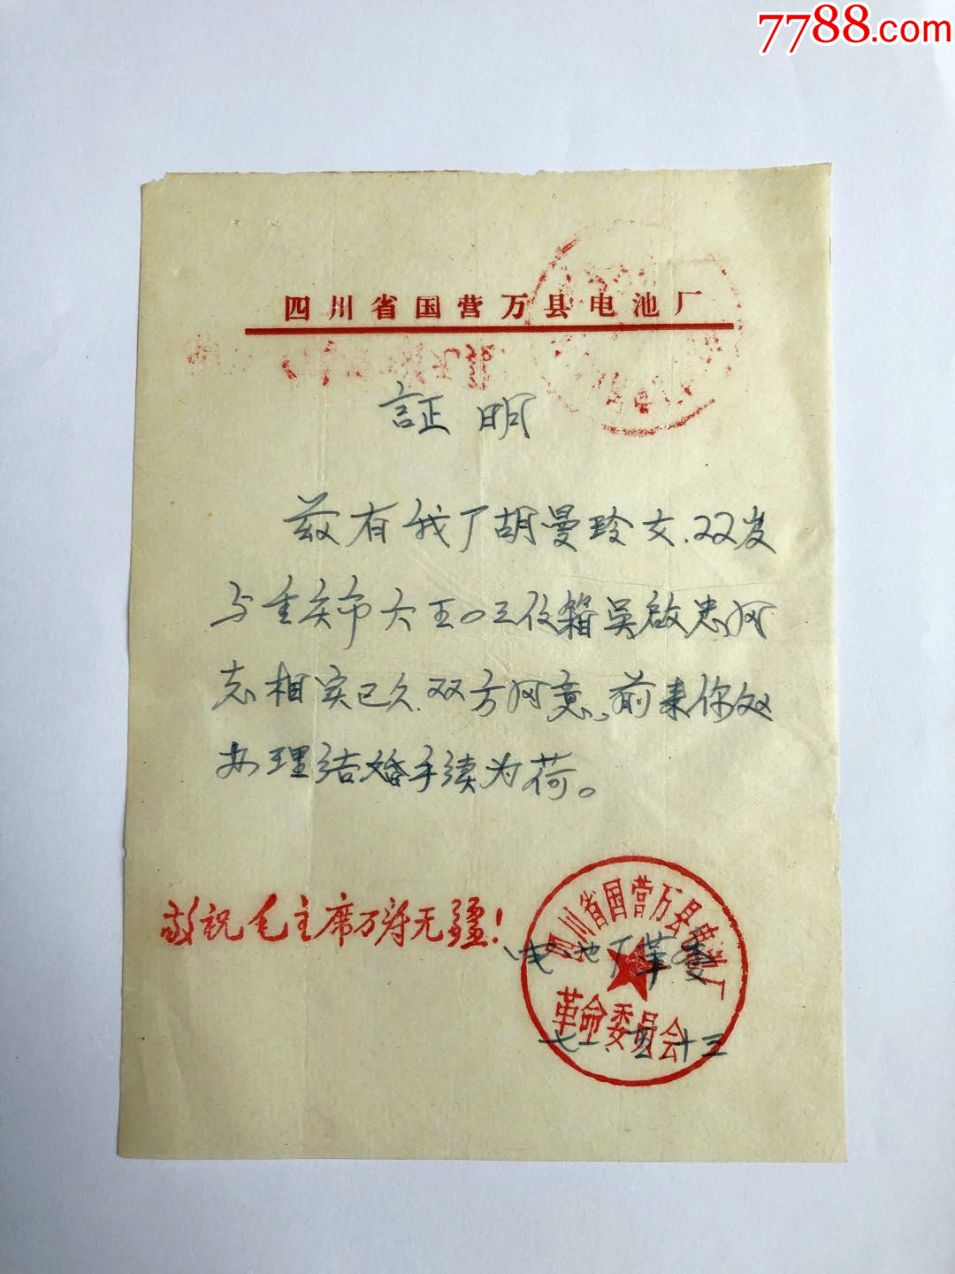 7788.com
四川省国营万县电池厂
証明
兹有我厂胡曼玲女、22岁
与重庆市六五〇三仪箱吴啟忠同
志相实已久、双方同意、前来你处
办理结婚手续为荷。
敬祝毛主席万寿无疆!
四川省国营万县电池厂
电池厂革委
革命委员会
七一、五、十三